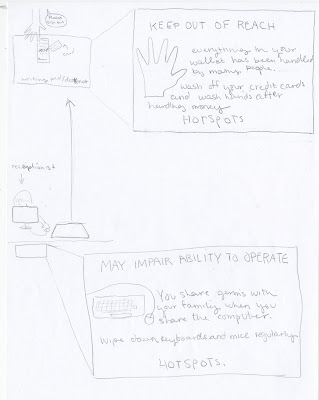 KEEP OUT OF REACH
everything in your
wallet has been handled
by many people.
wash off your credit cards
and wash hands after
handling money
HOTSPOTS
receptionist
MAY IMPAIR ABILITY TO OPERATE
You share germs with
your family when you
share the computer.
Wipe down keyboards and mice regularly.
HOTSPOTS.